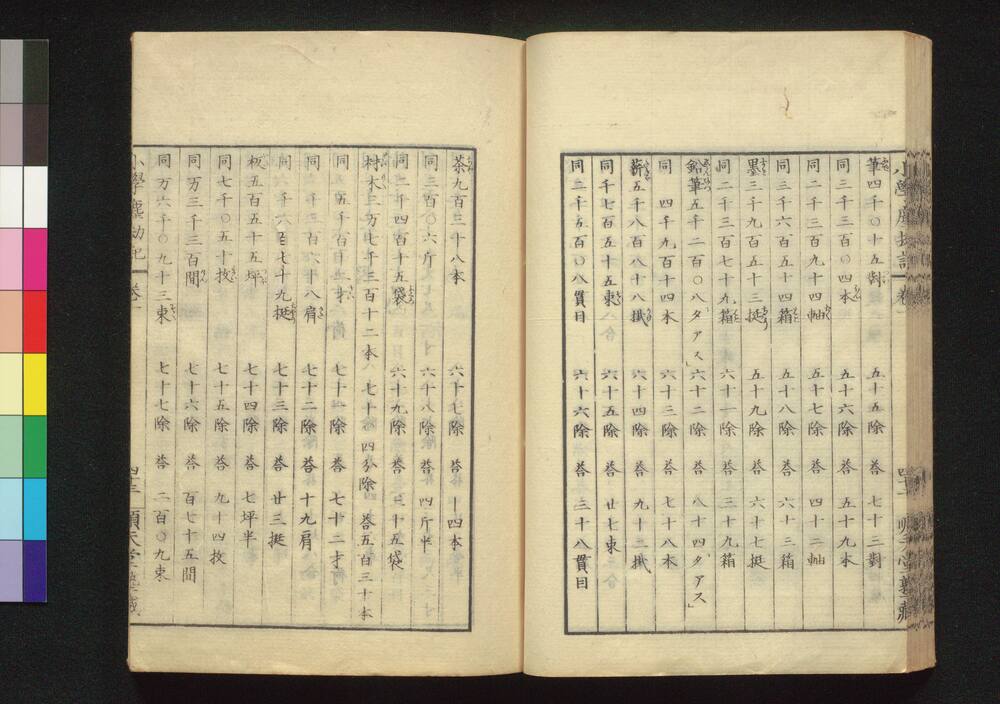 小學塵劫記 卷一 四十二 順天堂塾藏
筆四千〇十五對 五十五除 答 七十三對
同三千三百〇四本 五十六除 答 五十九本
同二千三百九十四軸 五十七除 答 四十二軸
同三千六百五十四箱 五十八除 答 六十三箱
墨三千九百五十三挺 五十九除 答 六十七挺
同二千三百七十九箱 六十一除 答 三十九箱
鉛筆五千二百〇八タアス」六十二除 答 八十四タアス」
同 四千九百十四本 六十三除 答 七十八本
薪五千八百八十八 六十四除 答 九十二
同千七百五十五束 六十五除 答 廿七束
同二千五百〇八貫目 六十六除 答 三十八貫目
茶九百三十八本 六十七除 答 十四本
同三百〇六斤 六十八除 答 四斤半
同二千四百十五袋 六十九除 答 三十五袋
材木三万七千三百十二本 七十〇四分除 答五百三十本
同 五千百十二才 七十一除 答 七十二才
同 千三百六十八肩 七十二除 答 十九肩
同 千六百七十九挺 七十三除 答 廿三挺
板五百五十五坪 七十四除 答 七坪半
同七千〇五十枚 七十五除 答 九十四枚
同一万三千三百間 七十六除 答 百七十五間
同一万六千〇九十三束 七十七除 答 二百〇九束
小學塵劫記 卷一 四十三 順天堂塾藏